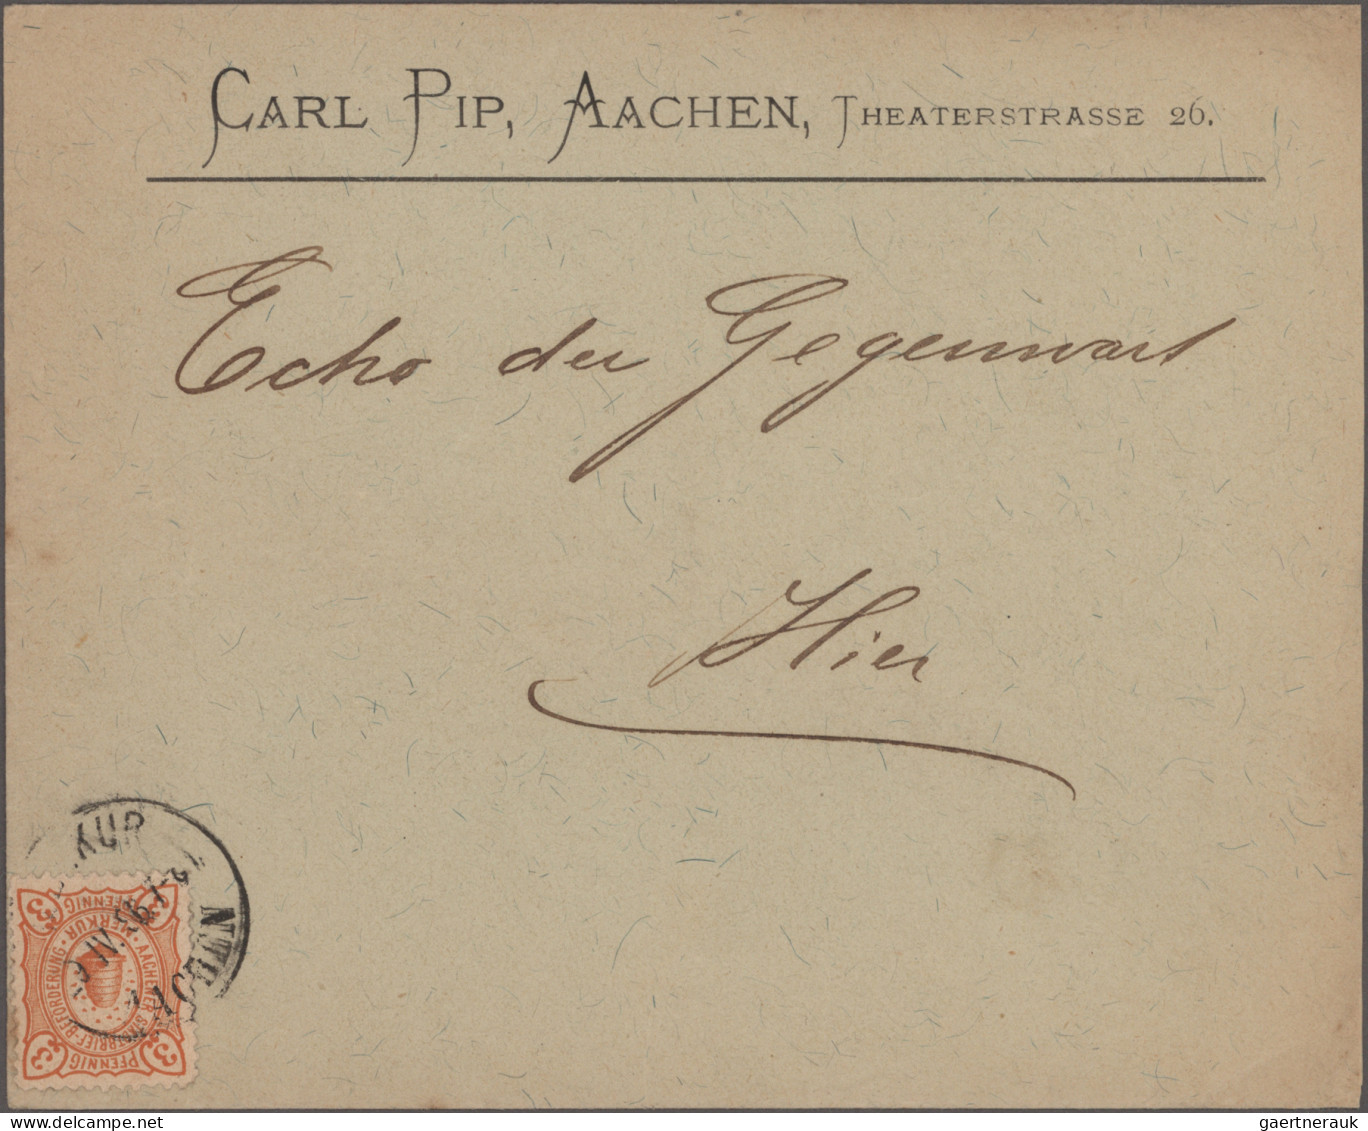 CARL PIP, AACHEN, THEATERSTRASSE 26.
Echo der Gegenwart
Hier
AACHEN
3 PFENNIG 3
AACHENER STADTBRIEF-BEFÖRDERUNG · MERKUR ·
3 PFENNIG 3
gaertnerauk